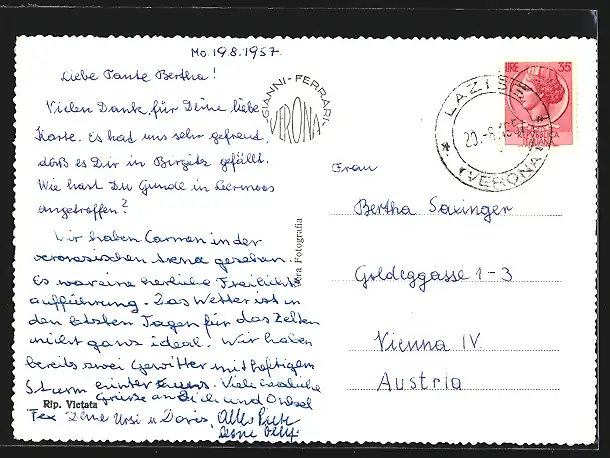 Mo. 19.8.1957.
Liebe Tante Bertha!
Vielen Dank für Deine liebe
Karte. Es hat uns sehr gefreut,
daß es Dir in Birgitz gefällt.
Wie hast Du Gundl in Lermoos
angetroffen?
Wir haben Carmen in der
veronesischen Arena gesehen.
Es war eine herrliche Freilicht-
aufführung. Das Wetter ist in
den letzten Tagen für das Zelten
nicht ganz ideal! Wir haben
bereits zwei Gewitter mit heftigem
Sturm hinter uns. Viele herzliche
Grüsse an Dich und Onkel
Deine Ursi u Doris, Alles Liebe
GIANNI-FERRARI-
VERONA
Vera Fotografia
Rip. Vietata
LIRE 35
REPUBBLICA
ITALIANA
LAZISE
20.-8.
(VERONA)
Frau
Bertha Saxinger
Goldeggasse 1-3
Vienna IV.
Austria